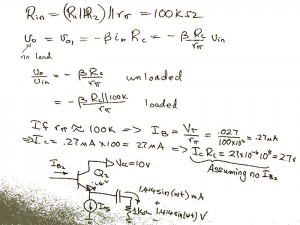 Rin = (R1||R2)||rπ = 100KΩ
υo = υo1 = -β ib Rc = -β Rc/rπ υin
no load
υo/υin = -β Rc/rπ unloaded
= -β Rc||100K/rπ loaded
If rπ ≈ 100K => IB = VT/rπ = .027/100x10³ = .27μA
=> Ic = .27μA x 100 = 27μA => Ic Rc = 27x10⁻⁶
Assuming no IB2
Vcc = 10V
IB2
Q2
1.414 sin(ωt) mA
1kΩ
1.414 sin(ωt) V